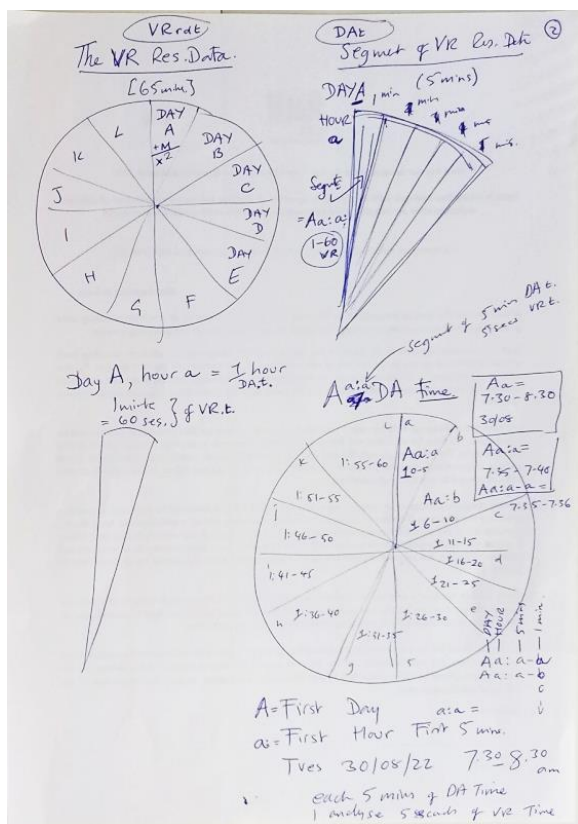 VRrdt
The VR Res.Data.
[65mins]
DAY
A
+M
x²
DAY
B
DAY
C
DAY
D
DAY
E
F
G
H
I
J
K
L
DAt
Segment of VR Res. Data
2
DAY A 1 min (5 mins)
1 min
1 min
1 min
1 min.
HOUR
a
Segmt
= Aa:a:
1-60
VR
segment of 5 min DA t.
5 secs VR t.
Day A, hour a = 1 hour
DA.t.
1 minute
= 60 secs. } of VR.t.
A a:a DA Time
Aa =
7.30 - 8.30
30/08
Aa:a =
7.35 - 7.40
Aa:a-a =
7.35-7.36
a
Aa:a
1:0-5
b
Aa:b
1:6-10
c
1:11-15
1:16-20
d
1:21-25
e
1:26-30
1:31-35
g
1:36-40
h
1:41-45
i
1:46-50
j
1:51-55
k
1:55-60
DAY
HOUR
5 mins
1 min.
Aa: a-a
Aa: a-b
c
A= First Day a:a =
a:= First Hour First 5 mins.
Tues 30/08/22 7.30-8.30
am
each 5 mins of DA Time
I analyse 5 seconds of VR Time